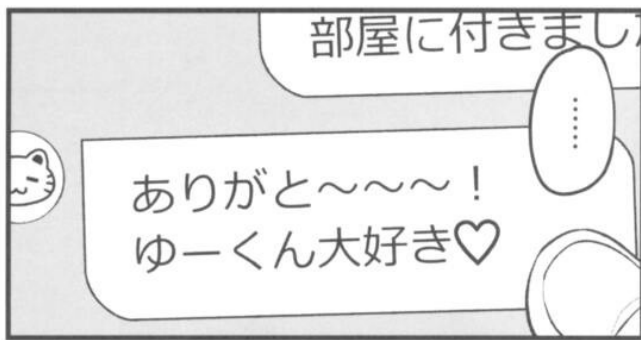 部屋に付きまし
ありがと～～～！
ゆーくん大好き♡
………